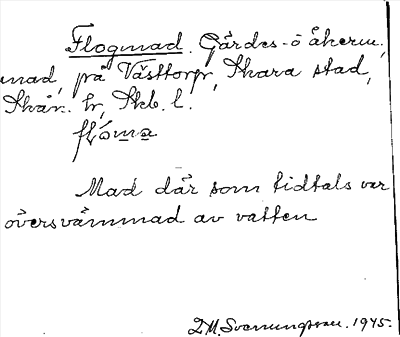 Flogmad. Gärdes- o åkerm.,
mad, på Västtorp, Skara stad,
Skån. hr, Skb. l.
flö̀ma
Mad där som tidtals var
översvämmad av vatten
D.M. Svenungsson. 1945.